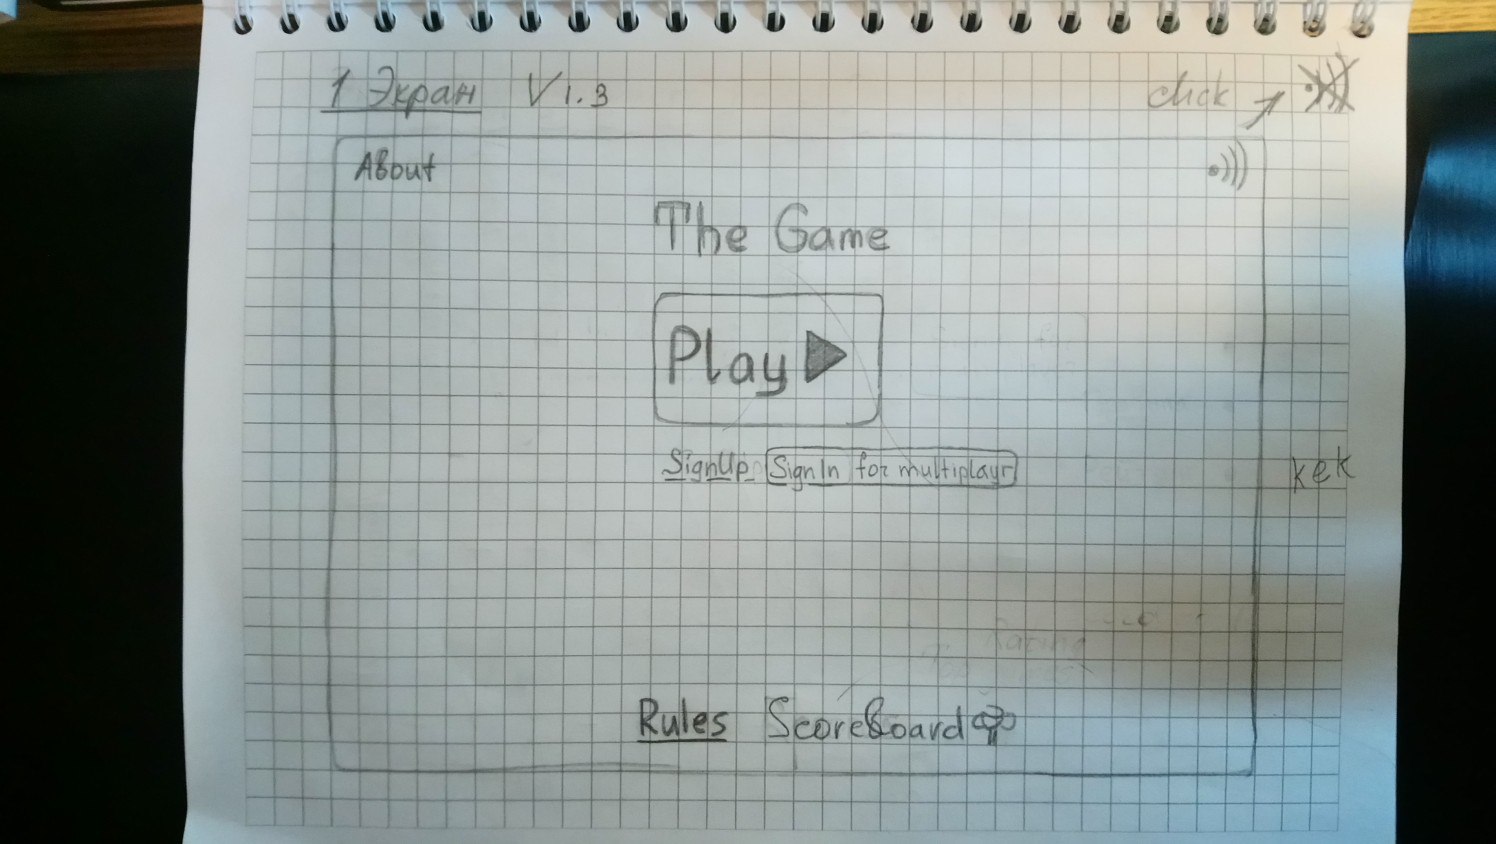 1 Экран V 1.3
click
About
The Game
Play
SignUp SignIn for multiplayr
kek
Rules ScoreBoard
Rating